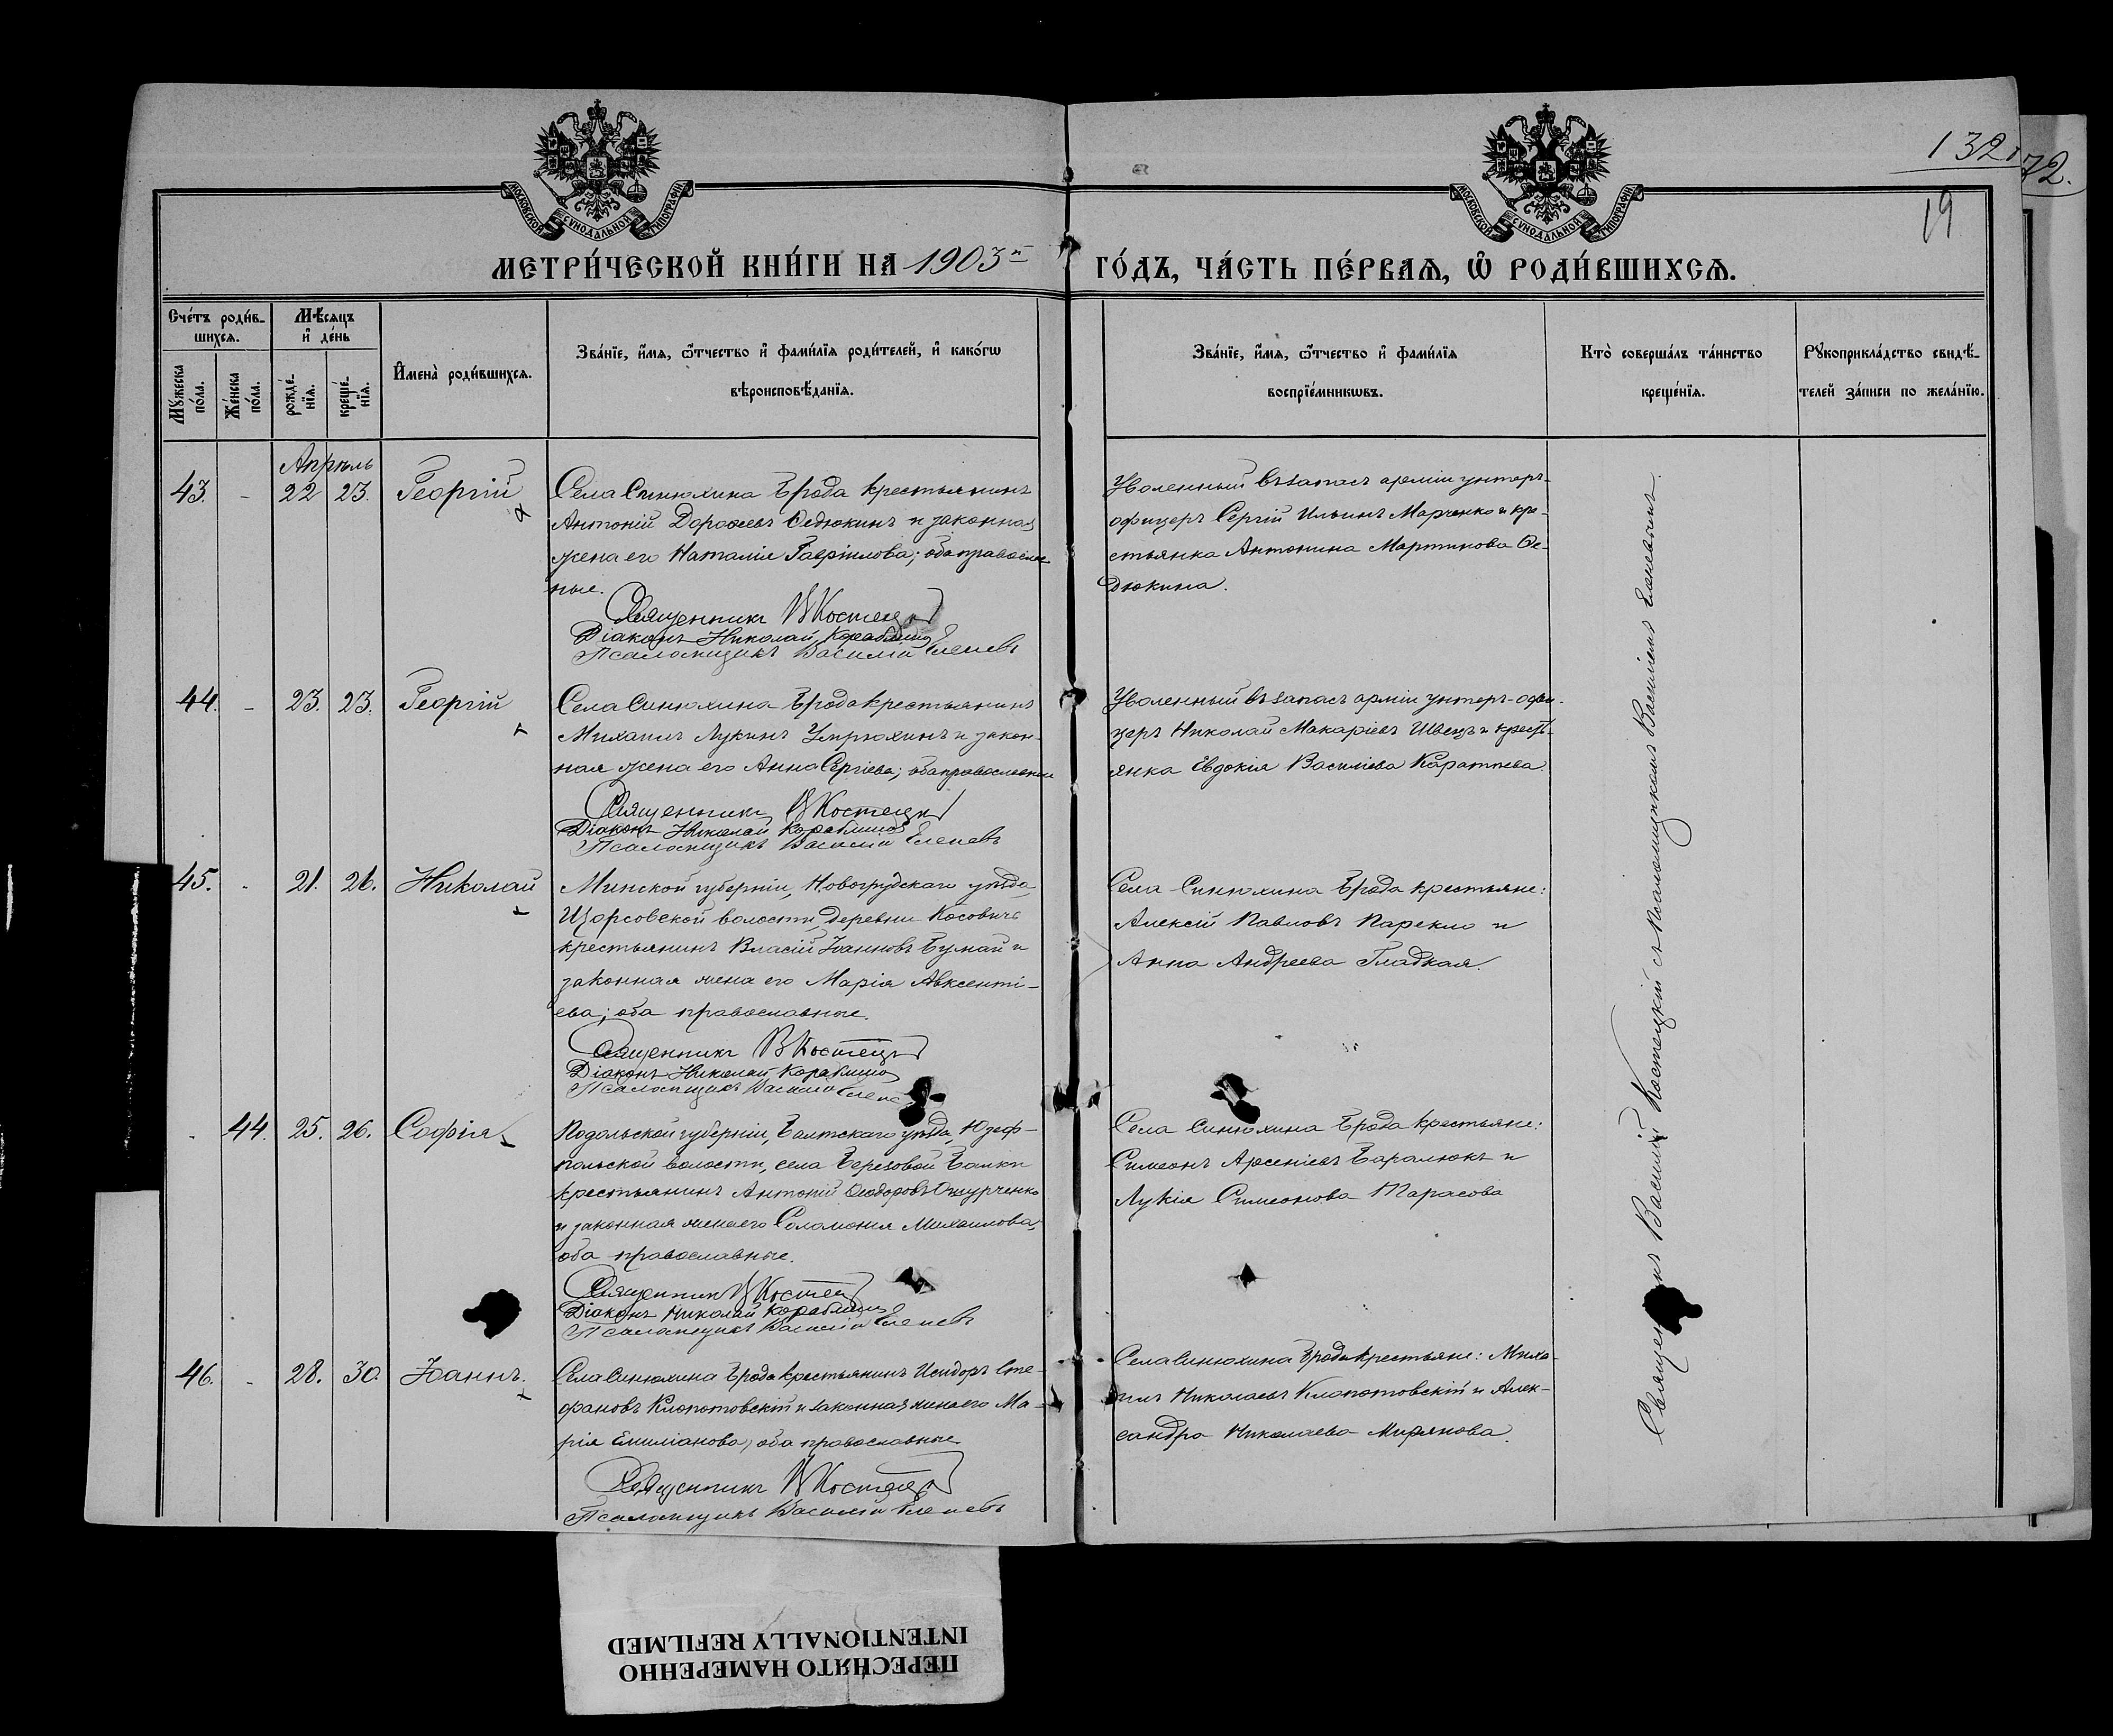 132
72.
19
МОСКОВСКОЙ СУНОДАЛЬНОЙ ТИПОГРАФІИ
МОСКОВСКОЙ СУНОДАЛЬНОЙ ТИПОГРАФІИ
МЕТРИ́ЧЕСКОЙ КНИ́ГИ НА 1903й ГО́ДЪ, ЧА́СТЬ ПЕ́РВАѦ, Ѽ РОДИ́ВШИХСѦ.
Сче́тъ роди́в-
шихсѧ.
Мѣ́сѧцъ
и҆ де́нь
Мꙋ́жеска
по́ла.
Же́нска
по́ла.
рожде́-
нїѧ.
креще́-
нїѧ.
И҆мена̀ роди́вшихсѧ.
Зва́нїе, и҆́мѧ, ѻ҆́тчество и҆ фами́лїѧ роди́телей, и҆ како́гѡ
вѣроисповѣ́данїѧ.
Зва́нїе, и҆́мѧ, ѻ҆́тчество и҆ фами́лїѧ
воспрїе́мникѡвъ.
Кто̀ соверша́лъ та́инство
креще́нїѧ.
Рꙋкоприкла́дство свидѣ́-
телей за́писи по жела́нїю.
Апрѣль
43. - 22 23. Георгій
Села Синюхина Брода крестьянинъ
Антоній Дорофеевъ Ѳедюкинъ и законная
жена его Наталія Гавріилова; оба православ-
ные.
Священникъ В Костецкій
Діаконъ Николай Кораблиновъ
Псаломщикъ Василій Еленевъ
Уволенный въ запасъ арміи унтеръ-
офицеръ Сергій Ильинъ Марченко и кре-
стьянка Антонина Мартинова Ѳе-
дюкина.
44. - 23. 23. Георгій
Села Синюхина Брода крестьянинъ
Михаилъ Лукинъ Умрюхинъ и закон-
ная жена его Анна Сергіева; оба православные
Священникъ В Костецкій
Діаконъ Николай Кораблиновъ
Псаломщикъ Василій Еленевъ
Уволенный въ запасъ арміи унтеръ-офи-
церъ Николай Макаріевъ Швецъ и кресть-
янка Евдокія Василіева Каратѣева.
45. - 21. 26. Николай
Минской губерніи, Новогрудскаго уѣзда,
Щорсовской волости, деревни Косовичъ
крестьянинъ Власій Іоанновъ Бумай и
законная жена его Марія Авксенті-
ева; оба православные.
Священникъ В Костецкій
Діаконъ Николай Кораблиновъ
Псаломщикъ Василій
Села Синюхина Брода крестьяне:
Алексій Павловъ Парекло и
Анна Андреева Гладкая.
- 44. 25. 26. Софія
Подольской губерніи, Балтскаго уѣзда, Юзеф-
польской волости, села Березовой Балки
крестьянинъ Антоній Ѳеодоровъ
и законная жена его Соломонія Михаилова,
оба православные.
Священникъ В Костецкій
Діаконъ Николай Кораблиновъ
Псаломщикъ Василій Еленевъ
Села Синюхина Брода крестьяне:
Симеонъ Арсеніевъ Баралюкъ и
Лукія Симеонова Тарасова
46. - 28. 30 Іоаннъ.
Села Синюхина Брода крестьянинъ Исидоръ Сте-
фановъ Клопотовскій и законная жена его Ма-
рія Емиліанова, оба православные
Священникъ В Костецкій
Псаломщикъ Василій Еленевъ
Села Синюхина Брода крестьяне: Миха-
илъ Николаевъ Клопотовскій и Алек-
сандра Николаева Мирянова.
Священникъ Василій Костецкій съ псаломщикомъ Василіемъ Еленевымъ.
ПЕРЕСНЯТО НАМЕРЕННО
INTENTIONALLY REFILMED